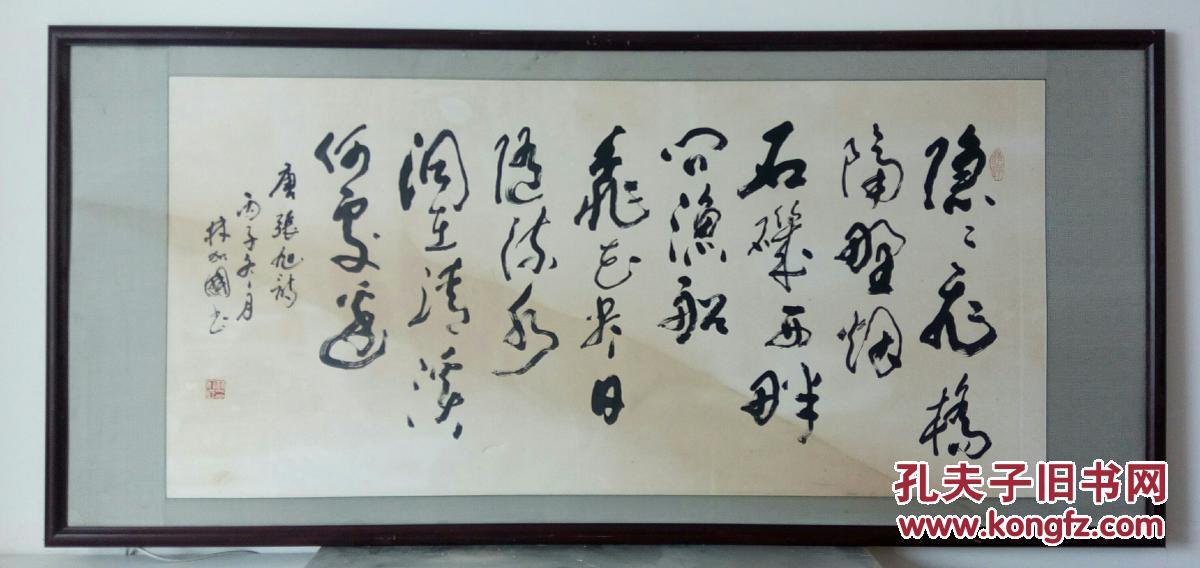 隱〻飛橋
隔野烟
石磯西畔
問漁船
桃花尽日
隨流水
洞在清溪
何處邊
唐張旭詩
丙子冬月
林加國书
孔夫子旧书网
www.kongfz.com